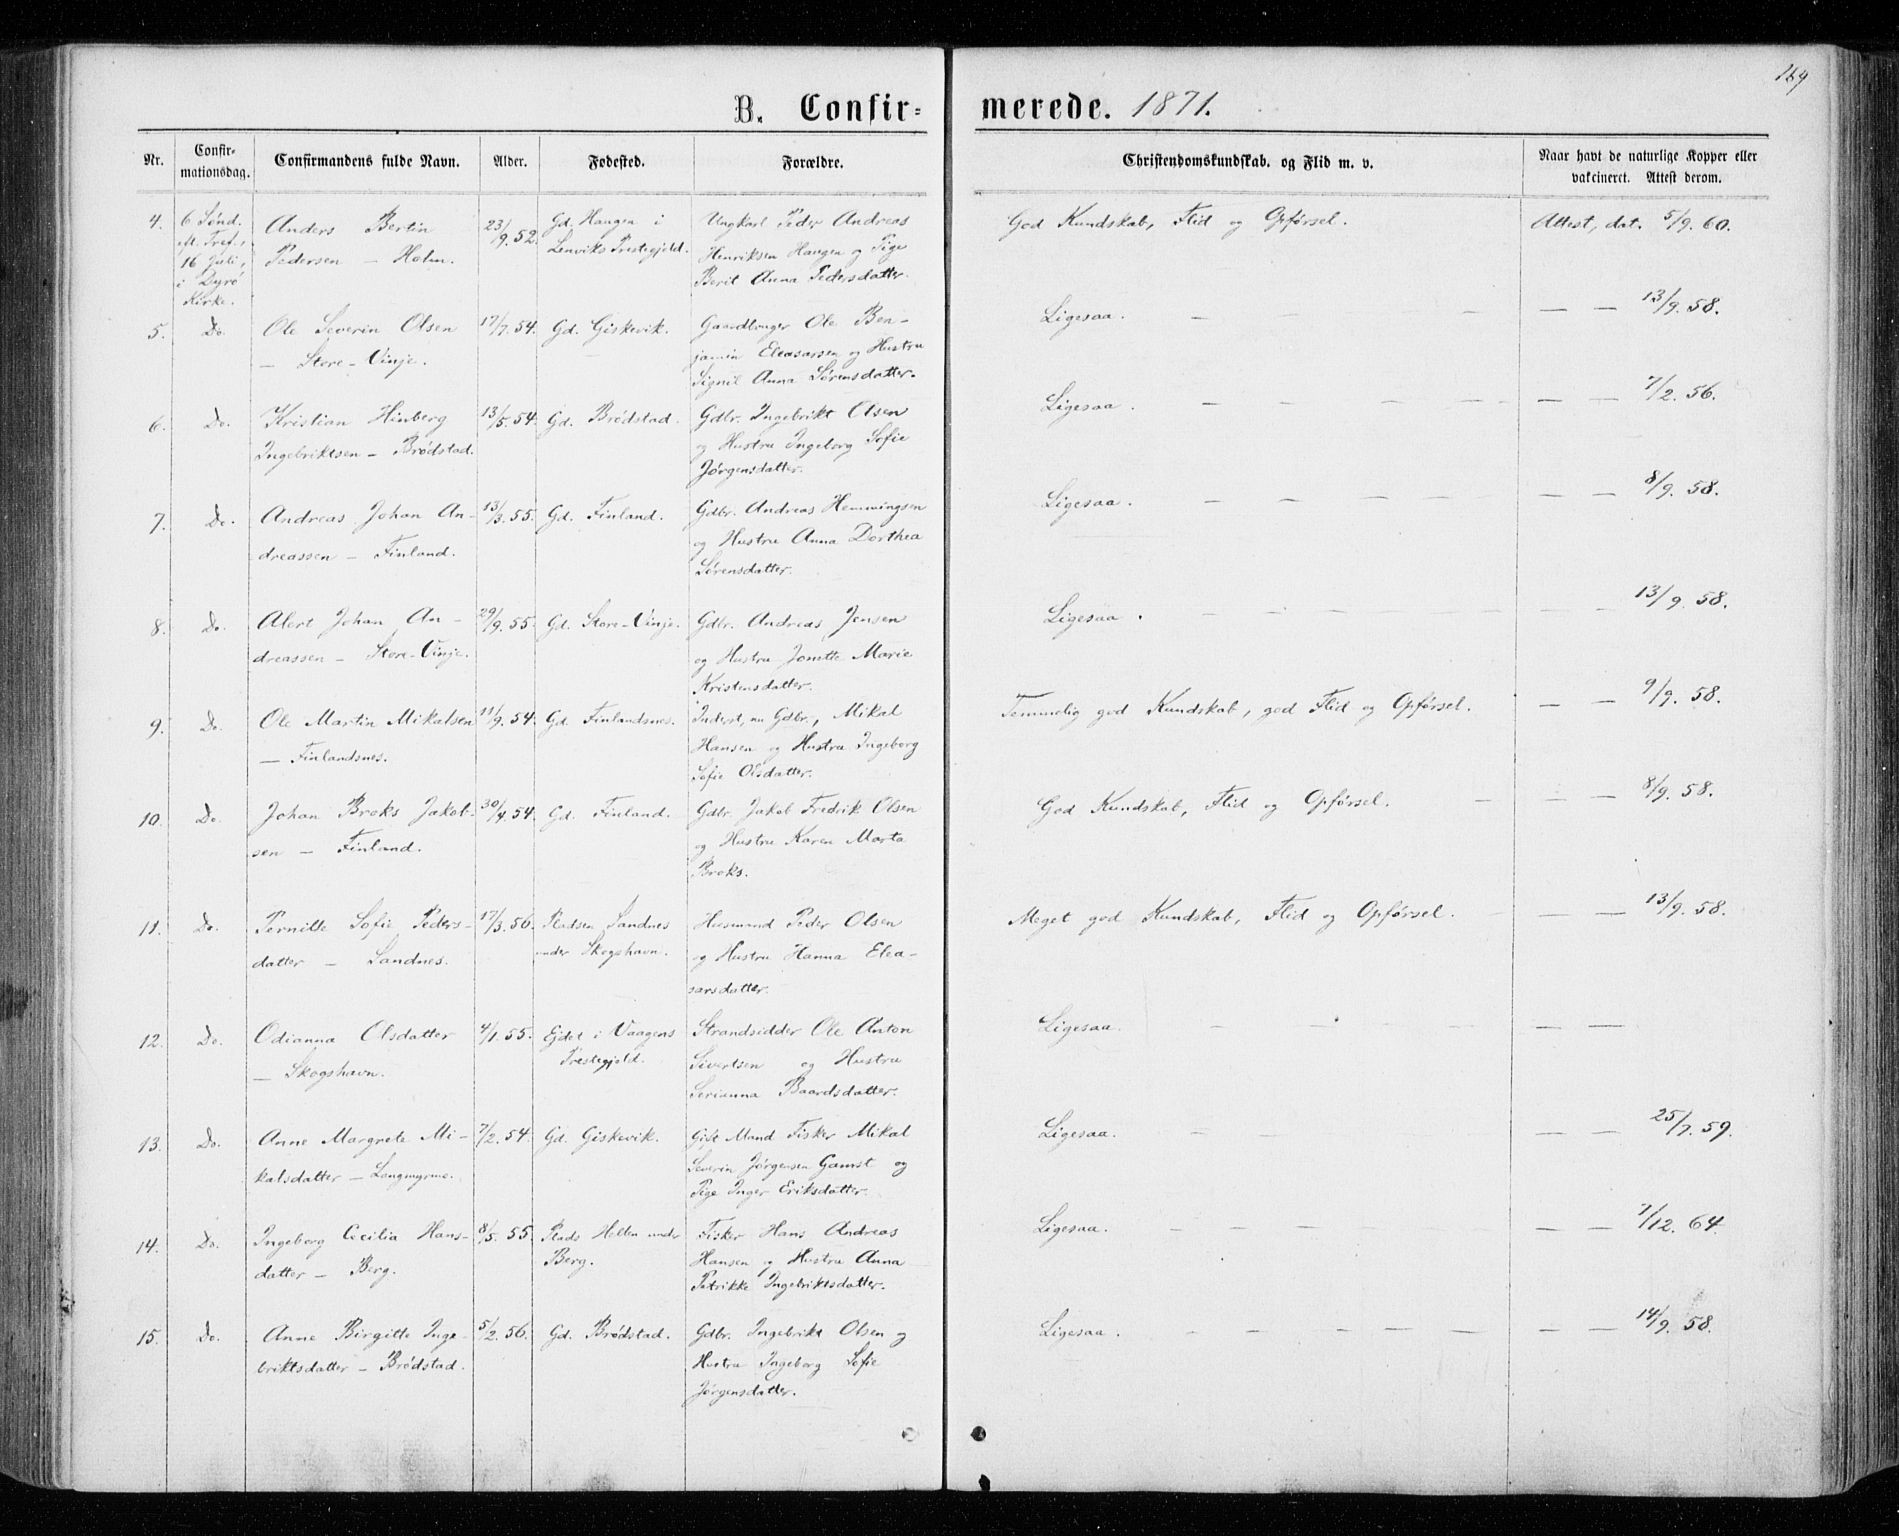 169
B. Confir= merede. 1871.
Nr. Confir-mationsdag. Confirmandens fulde Navn. Alder. Fødested. Forældre. Christendomskundskab. og Flid m. v. Naar havt de naturlige Kopper eller vakcineret. Attest derom.
4. 6 Sönd. Anders Bertin 23/9. 52. Gd. Haugen i Ungkarl Peder Andreas God Kundskab, Flid og Opförsel. Attest, dat. 5/9. 60.
eft. Tref., Pedersen – Holm. Lenviks Prestegjeld. Henriksen Haugen og Pige
16 Juli, Berit Anna Pedersdatter.
i Dyrö
Kirke.
5. Do. Ole Severin Olsen 17/7. 54. Gd. Giskevik. Gaardbruger Ole Ben- Ligesaa. — — 13/9. 58.
– Store-Vinje. jamin Eleasarsen og Hustru
Signil Anna Sörensdatter.
6. Do. Kristian Hinberg 13/5. 54. Gd. Brödstad. Gdbr. Ingebrikt Olsen Ligesaa. — — 7/2. 56.
Ingebriktsen – Brödstad. og Hustru Ingeborg Sofie
Jörgensdatter.
7. Do. Andreas Johan An- 13/3. 55. Gd. Finland. Gdbr. Andreas Hemmingsen Ligesaa. — — 8/9. 58.
dreassen – Finland. og Hustru Anna Dorthea
Sörensdatter.
8. Do. Alert Johan An- 29/9. 55. Gd. Store-Vinje. Gdbr. Andreas Jensen Ligesaa. — — 13/9. 58.
dreassen – Store-Vinje. og Hustru Jonette Marie
Kristensdatter.
9. Do. Ole Martin Mikalsen 11/9. 54. Gd. Finlandsnes. Inderst, nu Gdbr., Mikal Temmelig god Kundskab, god Flid og Opförsel. — — 9/9. 58.
– Finlandsnes. Hansen og Hustru Ingeborg
Sofie Olsdatter.
10. Do. Johan Broks Jakob- 30/4. 54. Gd. Finland. Gdbr. Jakob Fredrik Olsen God Kundskab, Flid og Opförsel. — — 8/9. 58.
sen – Finland. og Hustru Karen Marta
Broks.
11. Do. Pernille Sofie Peders- 17/3. 56. Pladsen Sandnes Husmand Peder Olsen Meget god Kundskab, Flid og Opförsel. — — 13/9. 58.
datter – Sandnes. under Skogshavn. og Hustru Hanna Elea-
sarsdatter.
12. Do. Odianna Olsdatter 4/1. 55. Ejdet i Vaagens Strandsidder Ole Anton Ligesaa. — —
– Skogshavn. Prestegjeld. Sivertsen og Hustru
Serianna Baardsdatter.
13. Do. Anne Margrete Mi- 7/2. 54. Gd. Giskevik. Gift Mand Fisker Mikal Ligesaa. — — 25/7. 59.
kalsdatter – Langmyrme. Severin Jörgensen Gamst og
Pige Inger Eriksdatter.
14. Do. Ingeborg Cecilia Hans- 8/5. 55. Plads Hellen under Fisker Hans Andreas Ligesaa. — — 7/12. 64.
datter – Berg. Berg. Hansen og Hustru Anna
Petrikke Ingebriktsdatter.
15. Do. Anne Birgitte Inge- 5/2. 56. Gd. Brödstad. Gdbr. Ingebrikt Olsen og Ligesaa. — — 14/9. 58.
briktsdatter – Brödstad. Hustru Ingeborg Sofie
Jörgensdatter.